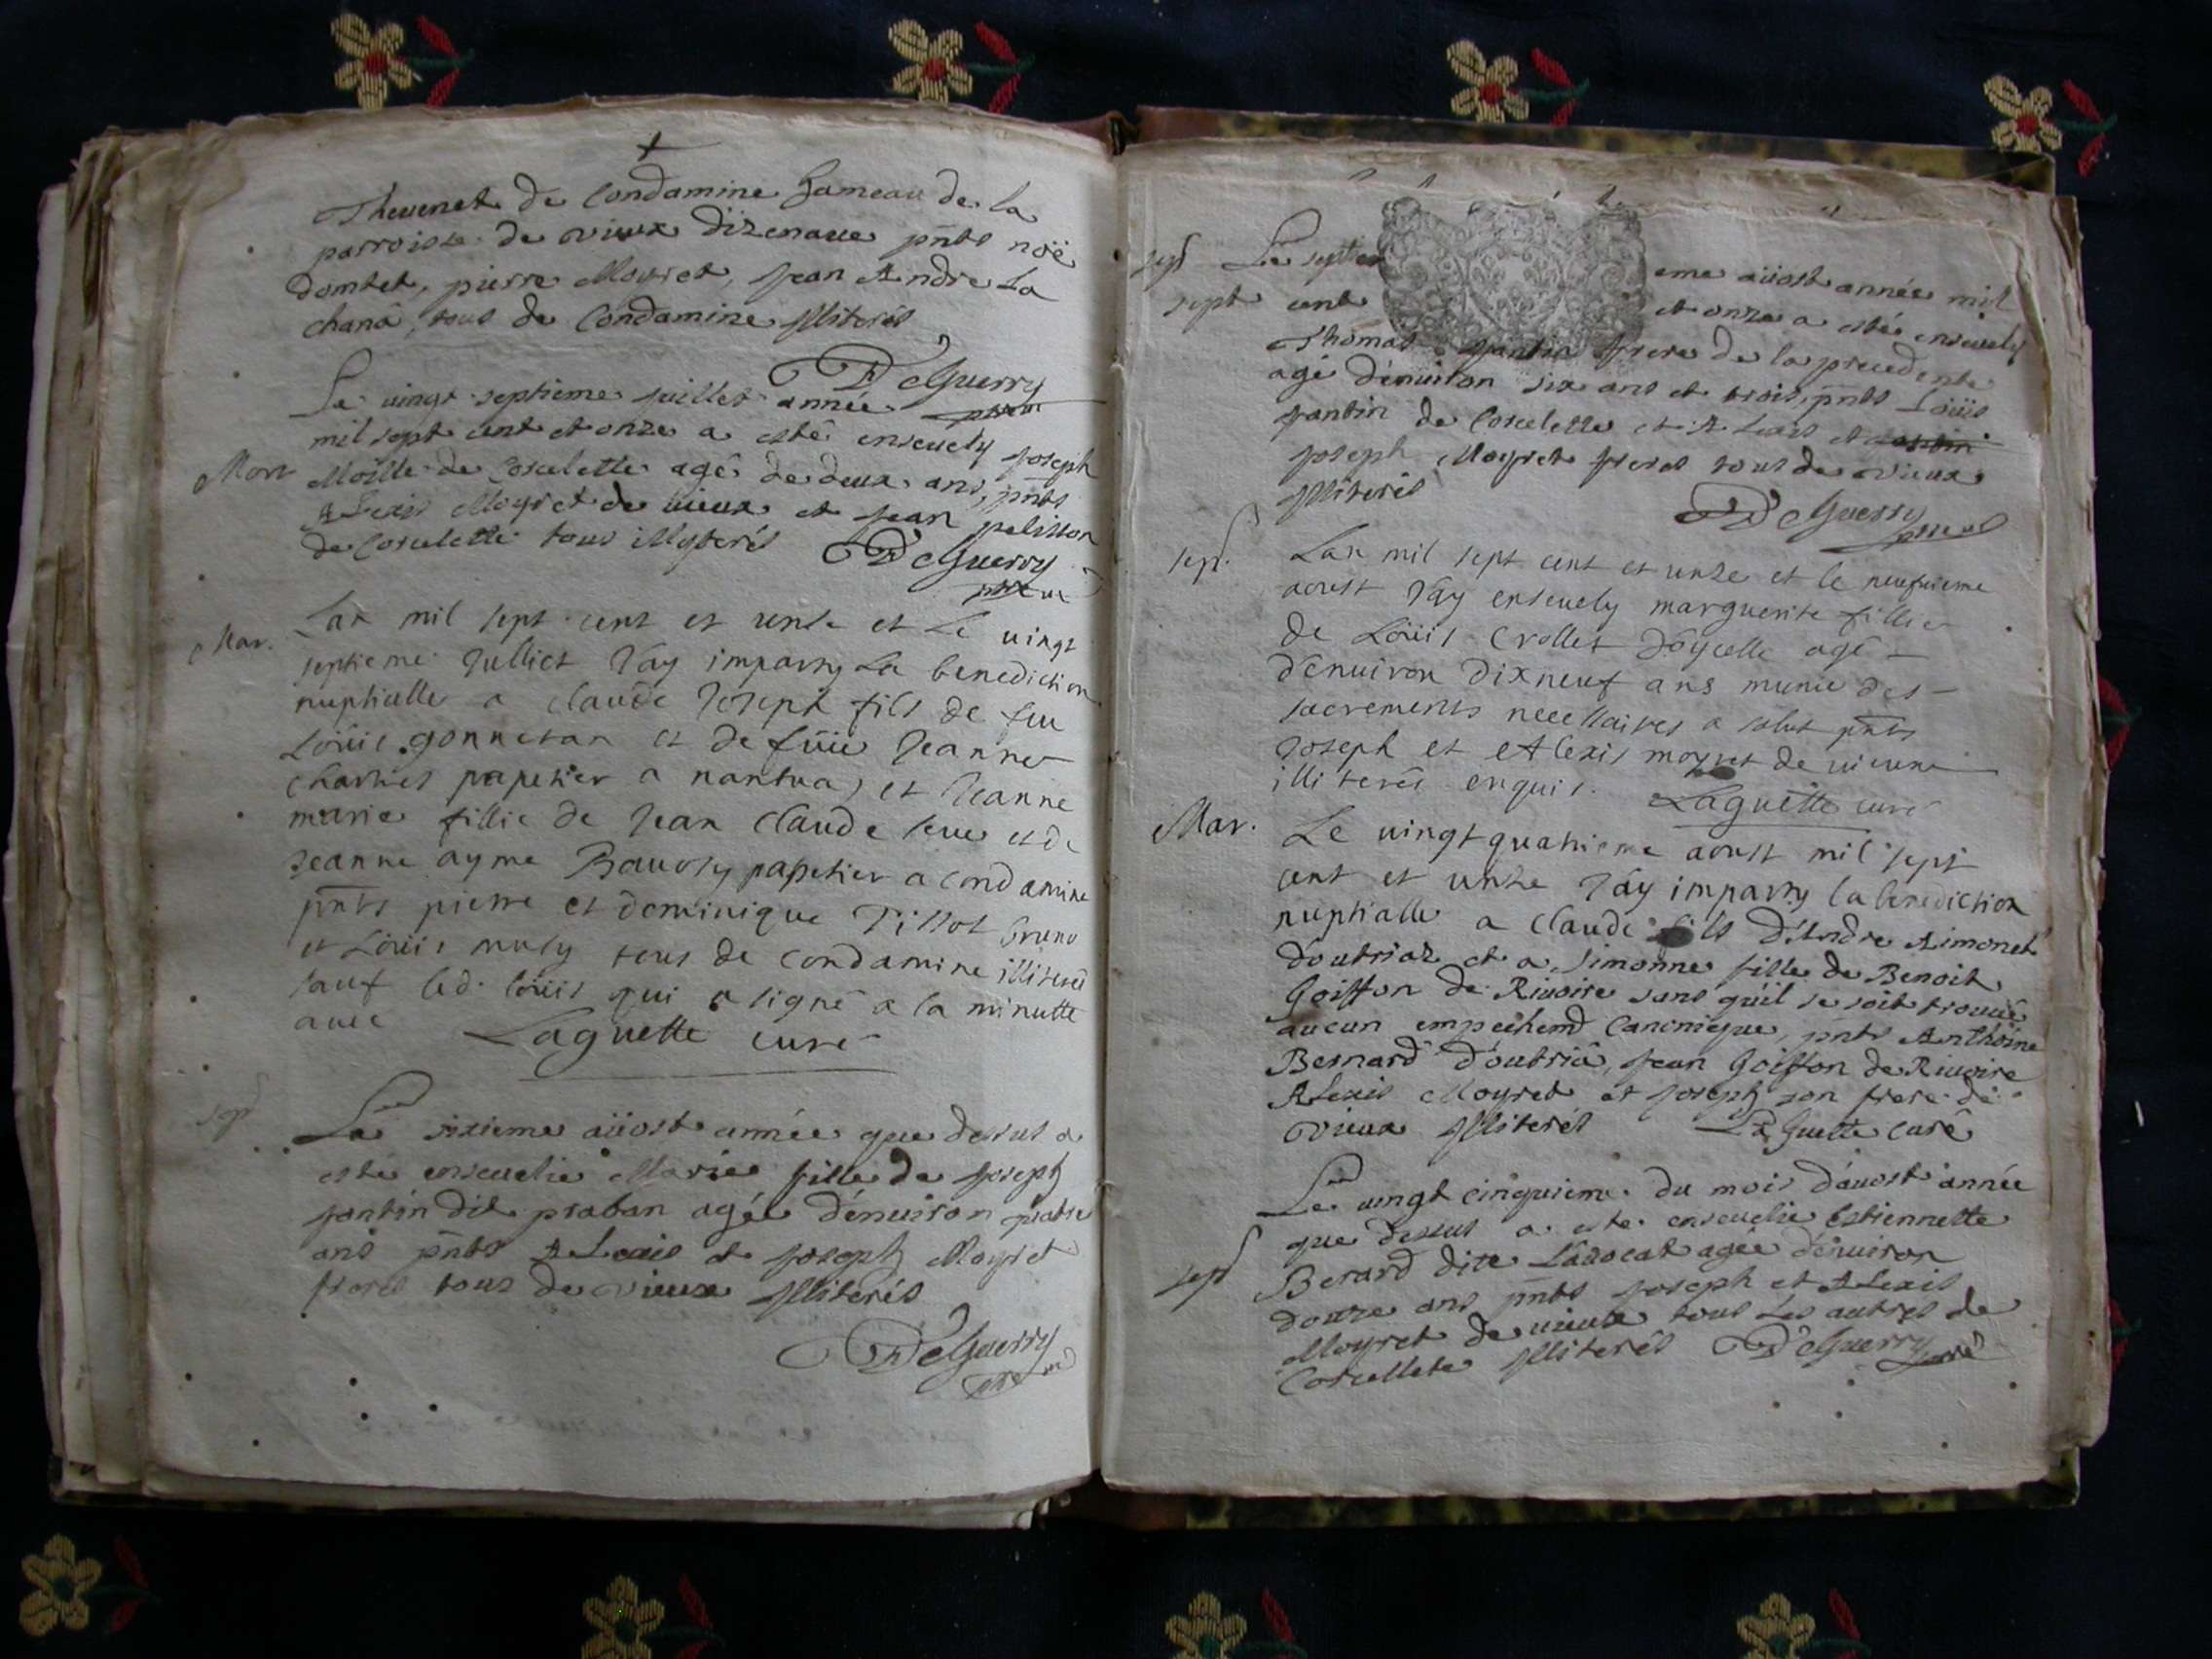 Thevenet de Condamine hameau de la
parroisse de vieux dizenave pnts noë
domtet, pierre Moyret, Jean Andre La
chanâ, tous de Condamine Illiterés
DeGuerry
Le vingt septieme juillet année
mil sept cent et onze a esté ensevely Joseph
Mort
Moille de Corcelette agé de deux ans, pnts
Alexis Moyret de vieux et Jean pelisson
de Corcelette tous illyterés DeGuerry
Mar.
Lan mil sept cent et unze et Le vingt
septieme Julliet J'ay imparty La benediction
nuptialle a claude Joseph fils de feu
Loüis gonnetan et de füe Jeanne
Charties papetier a nantua, et Jeanne
marie fillie de Jean Claude leue et de
Jeanne ayme papetier a condamine
pnts pierre et dominique Tissot bruno
et Loüis muly tous de condamine illiteré
sauf led. loüis qui a signé a la minutte
avec Laguette curé
sep
Le sixieme aüost année que dessus a
esté ensevelie Marie fille de Joseph
Jantin dit praban agée d'environ quatre
ans pnts Alexis et Joseph Moyret
freres tous de vieux Illiterés
DeGuerry
sep
Le septi eme aüost année mil
sept cent et onze a esté ensevely
Thomas Jantin frere de la precedente
agé d'environ six ans et trois, pnts Loüis
Jantin de Corcelette et Alexis et
Joseph Moyret freres tous de vieux
Illiterés
DeGuerry
sep.
Lan mil sept cent et unze et le neufvieme
aoust J'ay ensevely marguerite fillie
de Loüis Crollet Doycelle agé
d'environ dixneuf ans munie des
sacrements necessaires a salut pnts
Joseph et Alexis moyret de vieux
illiterés enquis. Laguette curé
Mar.
Le vingt quatrieme aoust mil sept
cent et unze J'ay imparty la benediction
nuptialle a Claude fils D'Andre Aimonet
d'outriaz et a Simonne fille de Benoit
Goiffon de Rivoire sans qu'il se soit trouvé
aucun empechemt Canonique, pnts Anthoine
Bernard d'outriâ, Jean Goiffon de Rivoire
Alexis Moyret et Joseph son frere de
vieux Illiterés LaGuette curé
Le vingt cinquieme du mois d'auost année
que dessus a esté ensevelie Estiennette
sep
Berard dite L'avocat agée d'environ
douze ans pnts Joseph et Alexis
Moyret de vieux tous Les autres de
Corcellete Illiterés DeGuerry